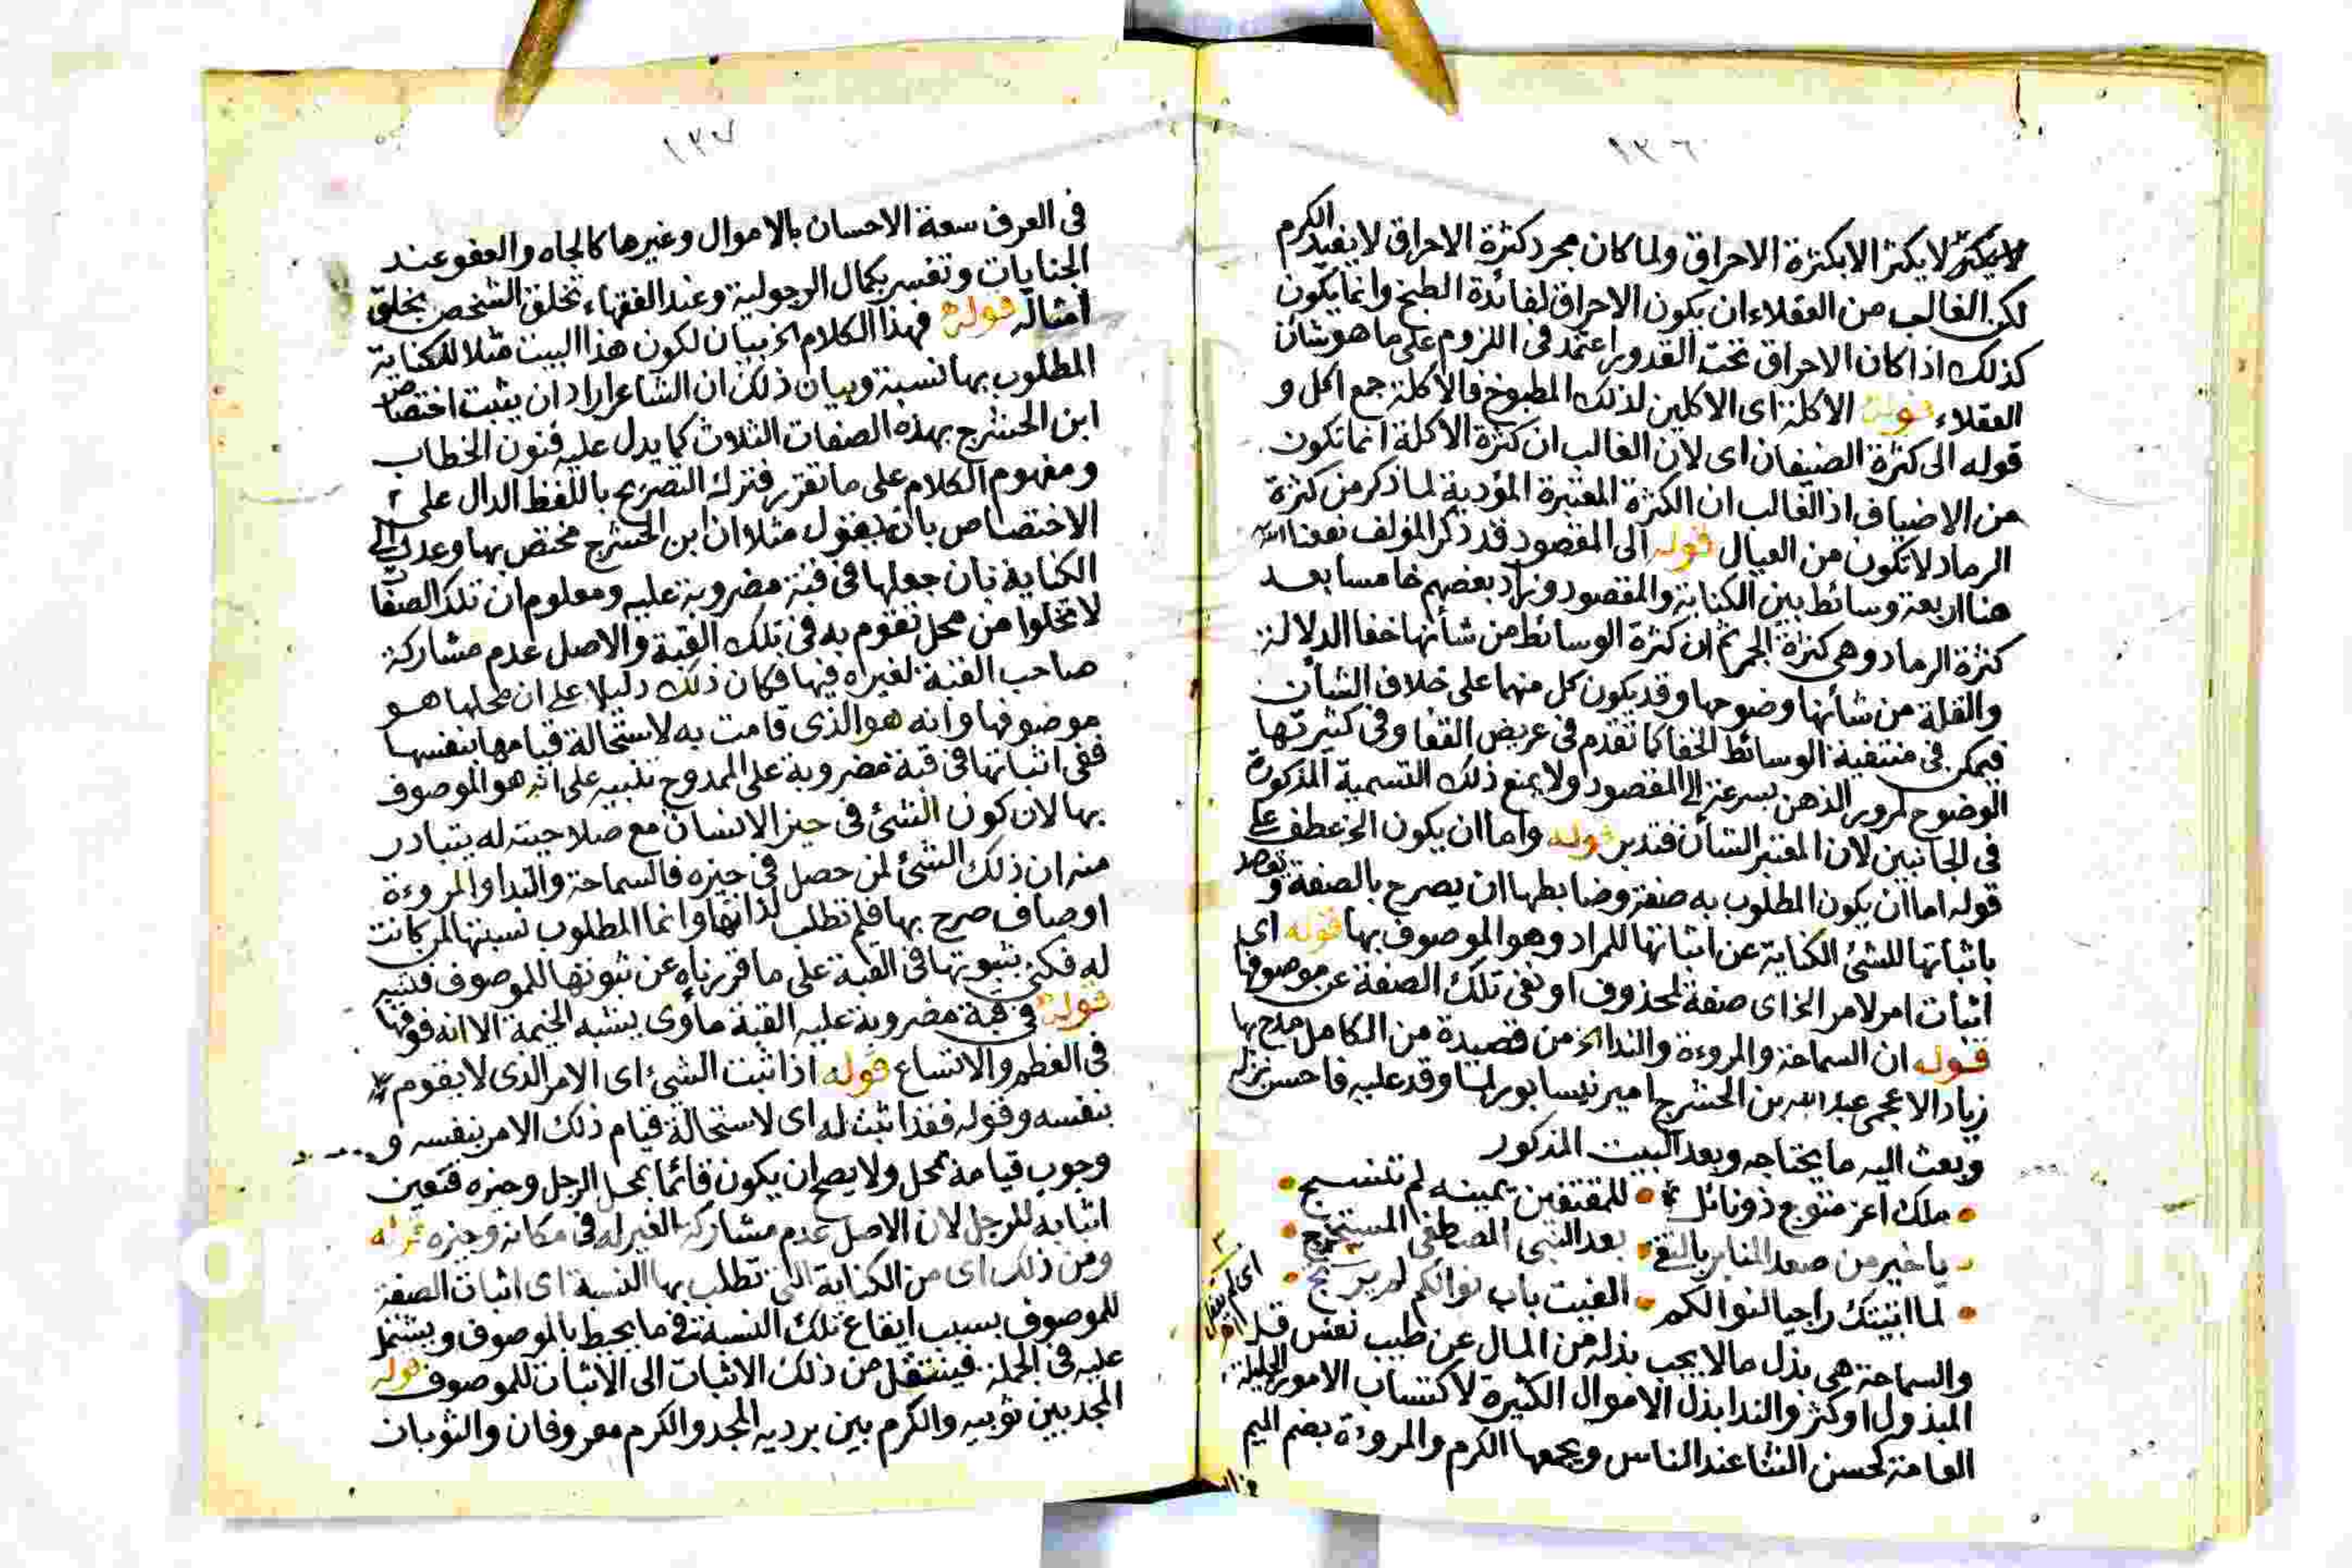 ١٣٦
لا يكثر لا يكثر الا بكثرة الاحراق ولما كان مجرد كثرة الاحراق لا يفيد الكرم
لكن الغالب من العقلاء ان يكون الاحراق لفائدة الطبخ وانما يكون
كذلك اذا كان الاحراق تحت القدور اعتمد فى اللزوم على ما هو شان
العقلاء قوله الاكلة اى الاكلين لذلك المطبوخ فالاكلة جمع اكل و
قوله الى كثرة الضيفان اى لان الغالب ان كثرة الاكلة انما تكون
من الاضياف اذ الغالب ان الكثرة المعتبرة المؤدية لما ذكر من كثرة
الرماد لا تكون من العيال قوله الى المقصود قد ذكر المؤلف نفعنا الله
هنا اربعة وسائط بين الكناية والمقصود وزاد بعضهم خامسا بعد
كثرة الرماد وهى كثرة الجمر ثم ان كثرة الوسائط من شأنها خفا الدلالة
والقلة من شأنها وضوحها وقد يكون كل منهما على خلاف الشأن
فيمكن فى منتفية الوسائط الخفا كما تقدم فى عريض القفا وفى كثيرتها
الوضوح لمرور الذهن بسرعة الى المقصود ولا يمنع ذلك التسمية المذكورة
فى الجانبين لان المعتبر الشأن فتدبر قوله واما ان يكون الخ عطف على
قوله اما ان يكون المطلوب به صفة وضابطها ان يصرح بالصفة و يقصد
باثباتها للشئ الكناية عن اثباتها للمراد وهو الموصوف بها قوله اى
اثبات امر لامر الخ اى صفة لمحذوف او نفى تلك الصفة عن موصوفها
قوله ان السماحة والمروءة والندا الخ من قصيدة من الكامل مدح بها
زياد الاعجمى عبد الله بن الحشرج امير نيسابور لما وفد عليه فاحسن نزله
وبعث اليه ما يحتاجه وبعد البيت المذكور
ملك اعز متوج ذو نائل للمقتفين يمينه لم تنسج
يا خير من صعد المنابر بالتقى بعد النبى المصطفى المستخرج
لما اتيتك راجيا لنوالكم الفيت باب نوالكم لم يرتج
والسماحة هى بذل ما لا يجب بذله من المال عن طيب نفس قل
المبذول او كثر والندا بذل الاموال الكثيرة لاكتساب الامور الجليلة
العامة كحسن الثنا عند الناس ويجمعها الكرم والمروءة بضم الميم
١٣٧
فى العرف سعة الاحسان بالاموال وغيرها كالجاه والعفو عند
الجنايات وتفسر بكمال الرجولية وعند الفقهاء تخلق الشخص بخلق
امثاله قوله فهذا الكلام الخ بيان لكون هذا البيت مثلا للكناية
المطلوب بها نسبة وبيان ذلك ان الشاعر اراد ان يثبت اختصاص
ابن الحشرج بهذه الصفات الثلاث كما يدل عليه فنون الخطاب
ومفهوم الكلام على ما تقرر فترك التصريح باللفظ الدال على
الاختصاص بان يقول مثلا ان ابن الحشرج مختص بها وعدل الى
الكناية بان جعلها فى قبة مضروبة عليه ومعلوم ان تلك الصفات
لا تخلوا من محل تقوم به فى تلك القبة والاصل عدم مشاركة
صاحب القبة لغيره فيها فكان ذلك دليلا على ان محلها هو
موضوفها وانه هو الذى قامت به لاستحالة قيامها بنفسها
ففى اثباتها فى قبة مضروبة على الممدوح تنبيه على انه هو الموصوف
بها لان كون الشئ فى حيز الانسان مع صلاحيته له يتبادر
منه ان ذلك الشئ لمن حصل فى حيزه فالسماحة والندا والمروءة
اوصاف صرح بها فلم تطلب لذاتها وانما المطلوب نسبتها لمن كانت
له فكنى بثبوتها فى القبة على ما قررناه عن ثبوتها للموصوف فتنبه
قوله فى قبة مضروبة عليه القبة مأوى يشبه الخيمة الا انه فوقها
فى العظم والاتساع قوله اذا ثبت الشئ اى الامر الذى لا يقوم
بنفسه وقوله فقد اثبت له اى لاستحالة قيام ذلك الامر بنفسه و
وجوب قيامه بمحل ولا يصح ان يكون قائما بمحل الرجل وحيزه فتعين
اثباته للرجل لان الاصل عدم مشاركة الغير له فى مكانه وحيزه قوله
ومن ذلك اى من الكناية التى تطلب بها النسبة اى اثبات الصفة
للموصوف بسبب ايقاع تلك النسبة فى ما يحيط بالموصوف ويشتمل
عليه فى الجملة فينتقل من ذلك الاثبات الى الاثبات للموصوف قوله
المجد بين ثوبيه والكرم بين برديه المجد والكرم معروفان والثوبان